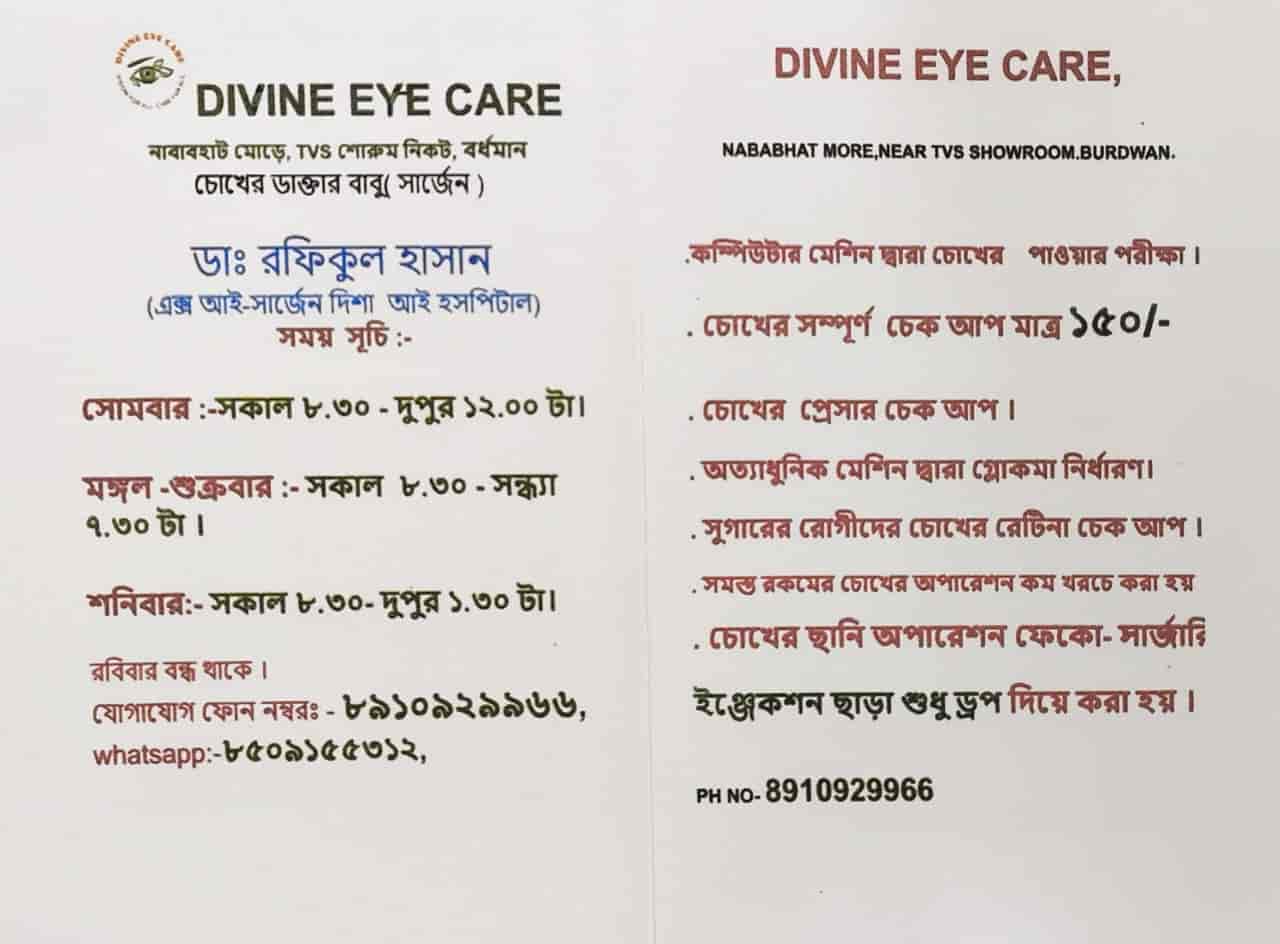 DIVINE EYE CARE
DIVINE EYE CARE
নাবাবহাট মোড়ে, TVS শোরুম নিকট, বর্ধমান
চোখের ডাক্তার বাবু( সার্জেন )
ডাঃ রফিকুল হাসান
(এক্স আই-সার্জেন দিশা আই হসপিটাল)
সময় সূচি :-
সোমবার :-সকাল ৮.৩০ - দুপুর ১২.০০ টা।
মঙ্গল -শুক্রবার :- সকাল ৮.৩০ - সন্ধ্যা
৭.৩০ টা ।
শনিবার:- সকাল ৮.৩০- দুপুর ১.৩০ টা।
রবিবার বন্ধ থাকে ।
যোগাযোগ ফোন নম্বরঃ - ৮৯১০৯২৯৯৬৬,
whatsapp:-৮৫০৯১৫৫৩১২,
DIVINE EYE CARE,
NABABHAT MORE,NEAR TVS SHOWROOM.BURDWAN.
.কম্পিউটার মেশিন দ্বারা চোখের পাওয়ার পরীক্ষা ।
. চোখের সম্পূর্ণ চেক আপ মাত্র ১৫০/-
. চোখের প্রেসার চেক আপ ।
. অত্যাধুনিক মেশিন দ্বারা গ্লোকমা নির্ধারণ।
. সুগারের রোগীদের চোখের রেটিনা চেক আপ ।
. সমস্ত রকমের চোখের অপারেশন কম খরচে করা হয়
. চোখের ছানি অপারেশন ফেকো- সার্জারি
ইঞ্জেকশন ছাড়া শুধু ড্রপ দিয়ে করা হয় ।
PH NO- 8910929966